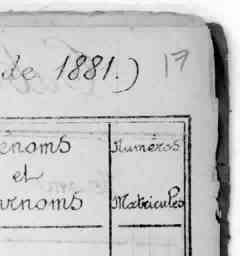 de 1881.) 17
énoms
et
urnoms
Numéros
Matricules